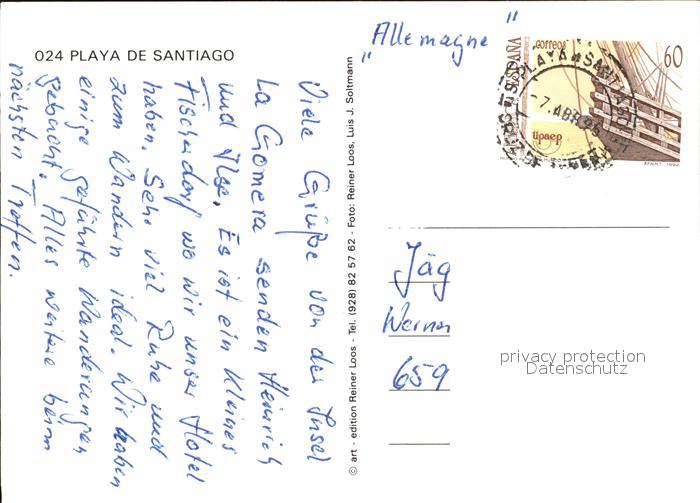 024 PLAYA DE SANTIAGO
Viele Grüße von der Insel
La Gomera senden Heinrich
und Ilse. Es ist ein kleines
Fischerdorf wo wir unser Hotel
haben. Sehr viel Ruhe und
zum Wandern ideal. Wir haben
einige geführte Wanderungen
gebucht. Alles weitere beim
nächsten Treffen.
© art - edition Reiner Loos - Tel. (928) 82 57 62 - Foto: Reiner Loos, Luis J. Soltmann
"Allemagne"
ESPAÑA
correos
60
upaep
PLAYA SANTIAGO
-7.ABR
Jäg
Werner
659
privacy protection
Datenschutz